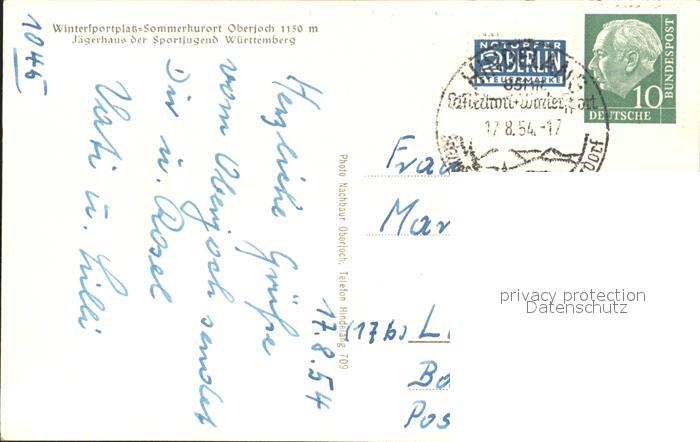 1046
Wintersportplatz-Sommerkurort Oberjoch 1150 m
Jägerhaus der Sportjugend Württemberg
Herzliche Grüße
vom Oberjoch sendet
Dir u. Rosel
Vati u. Lilli
17.8.54
Photo Nachbaur Oberjoch, Telefon Hindelang 709
NOTOPFER
2 BERLIN
STEUERMARKE
17.8.54.-17
10
DEUTSCHE
BUNDESPOST
Frau
Mar
(17b) L
Bo
Pos
privacy protection
Datenschutz